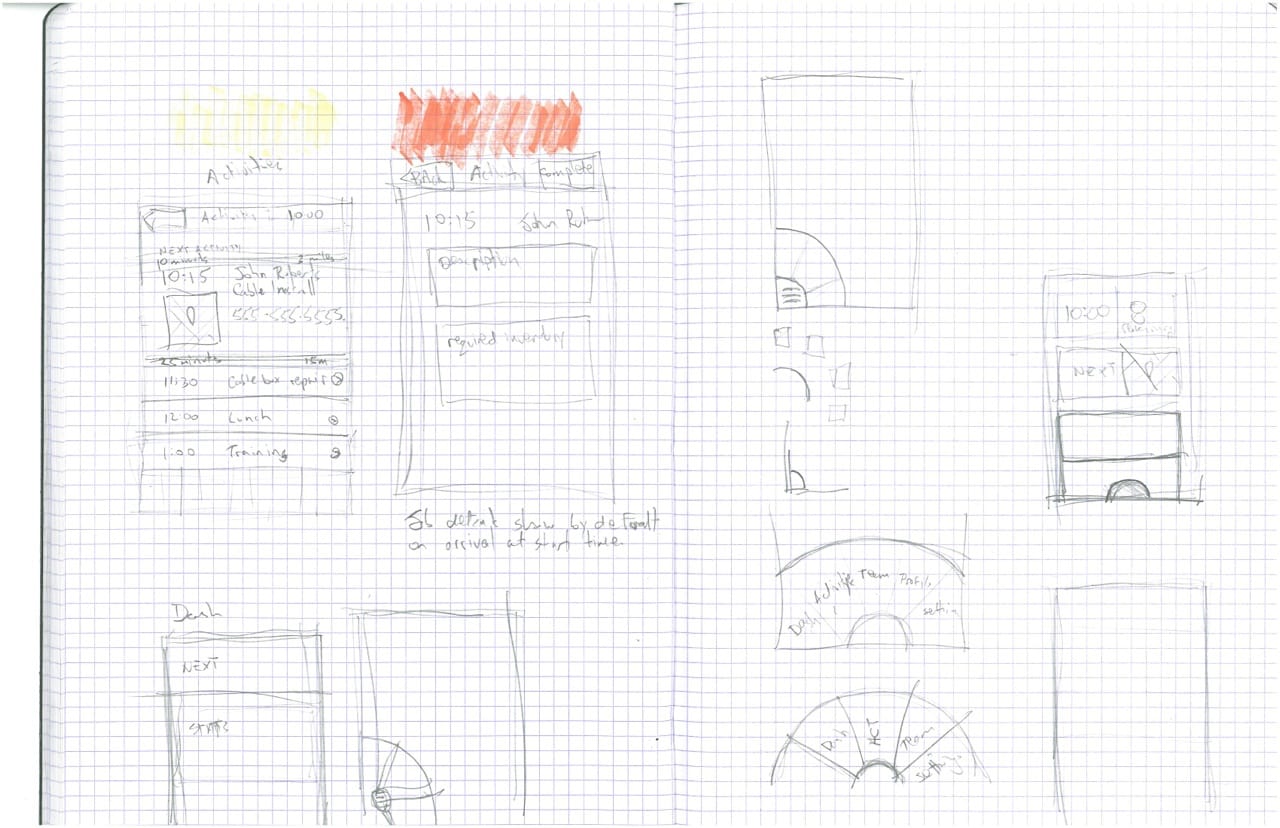 Activities
Activity : 10:00
NEXT ACTIVITY
10 minutes 2 miles
10:15 John Roberts
Cable Install
555-555-5555
25 minutes 15m
11:30 Cable box repair
12:00 Lunch
1:00 Training
Back Activity Complete
10:15 John
Description
required inventory
Job details show by default
on arrival at start time.
Dash
NEXT
STATS
10:00
NEXT
Dash Activities Team Profile
Dash ACT Team Settings